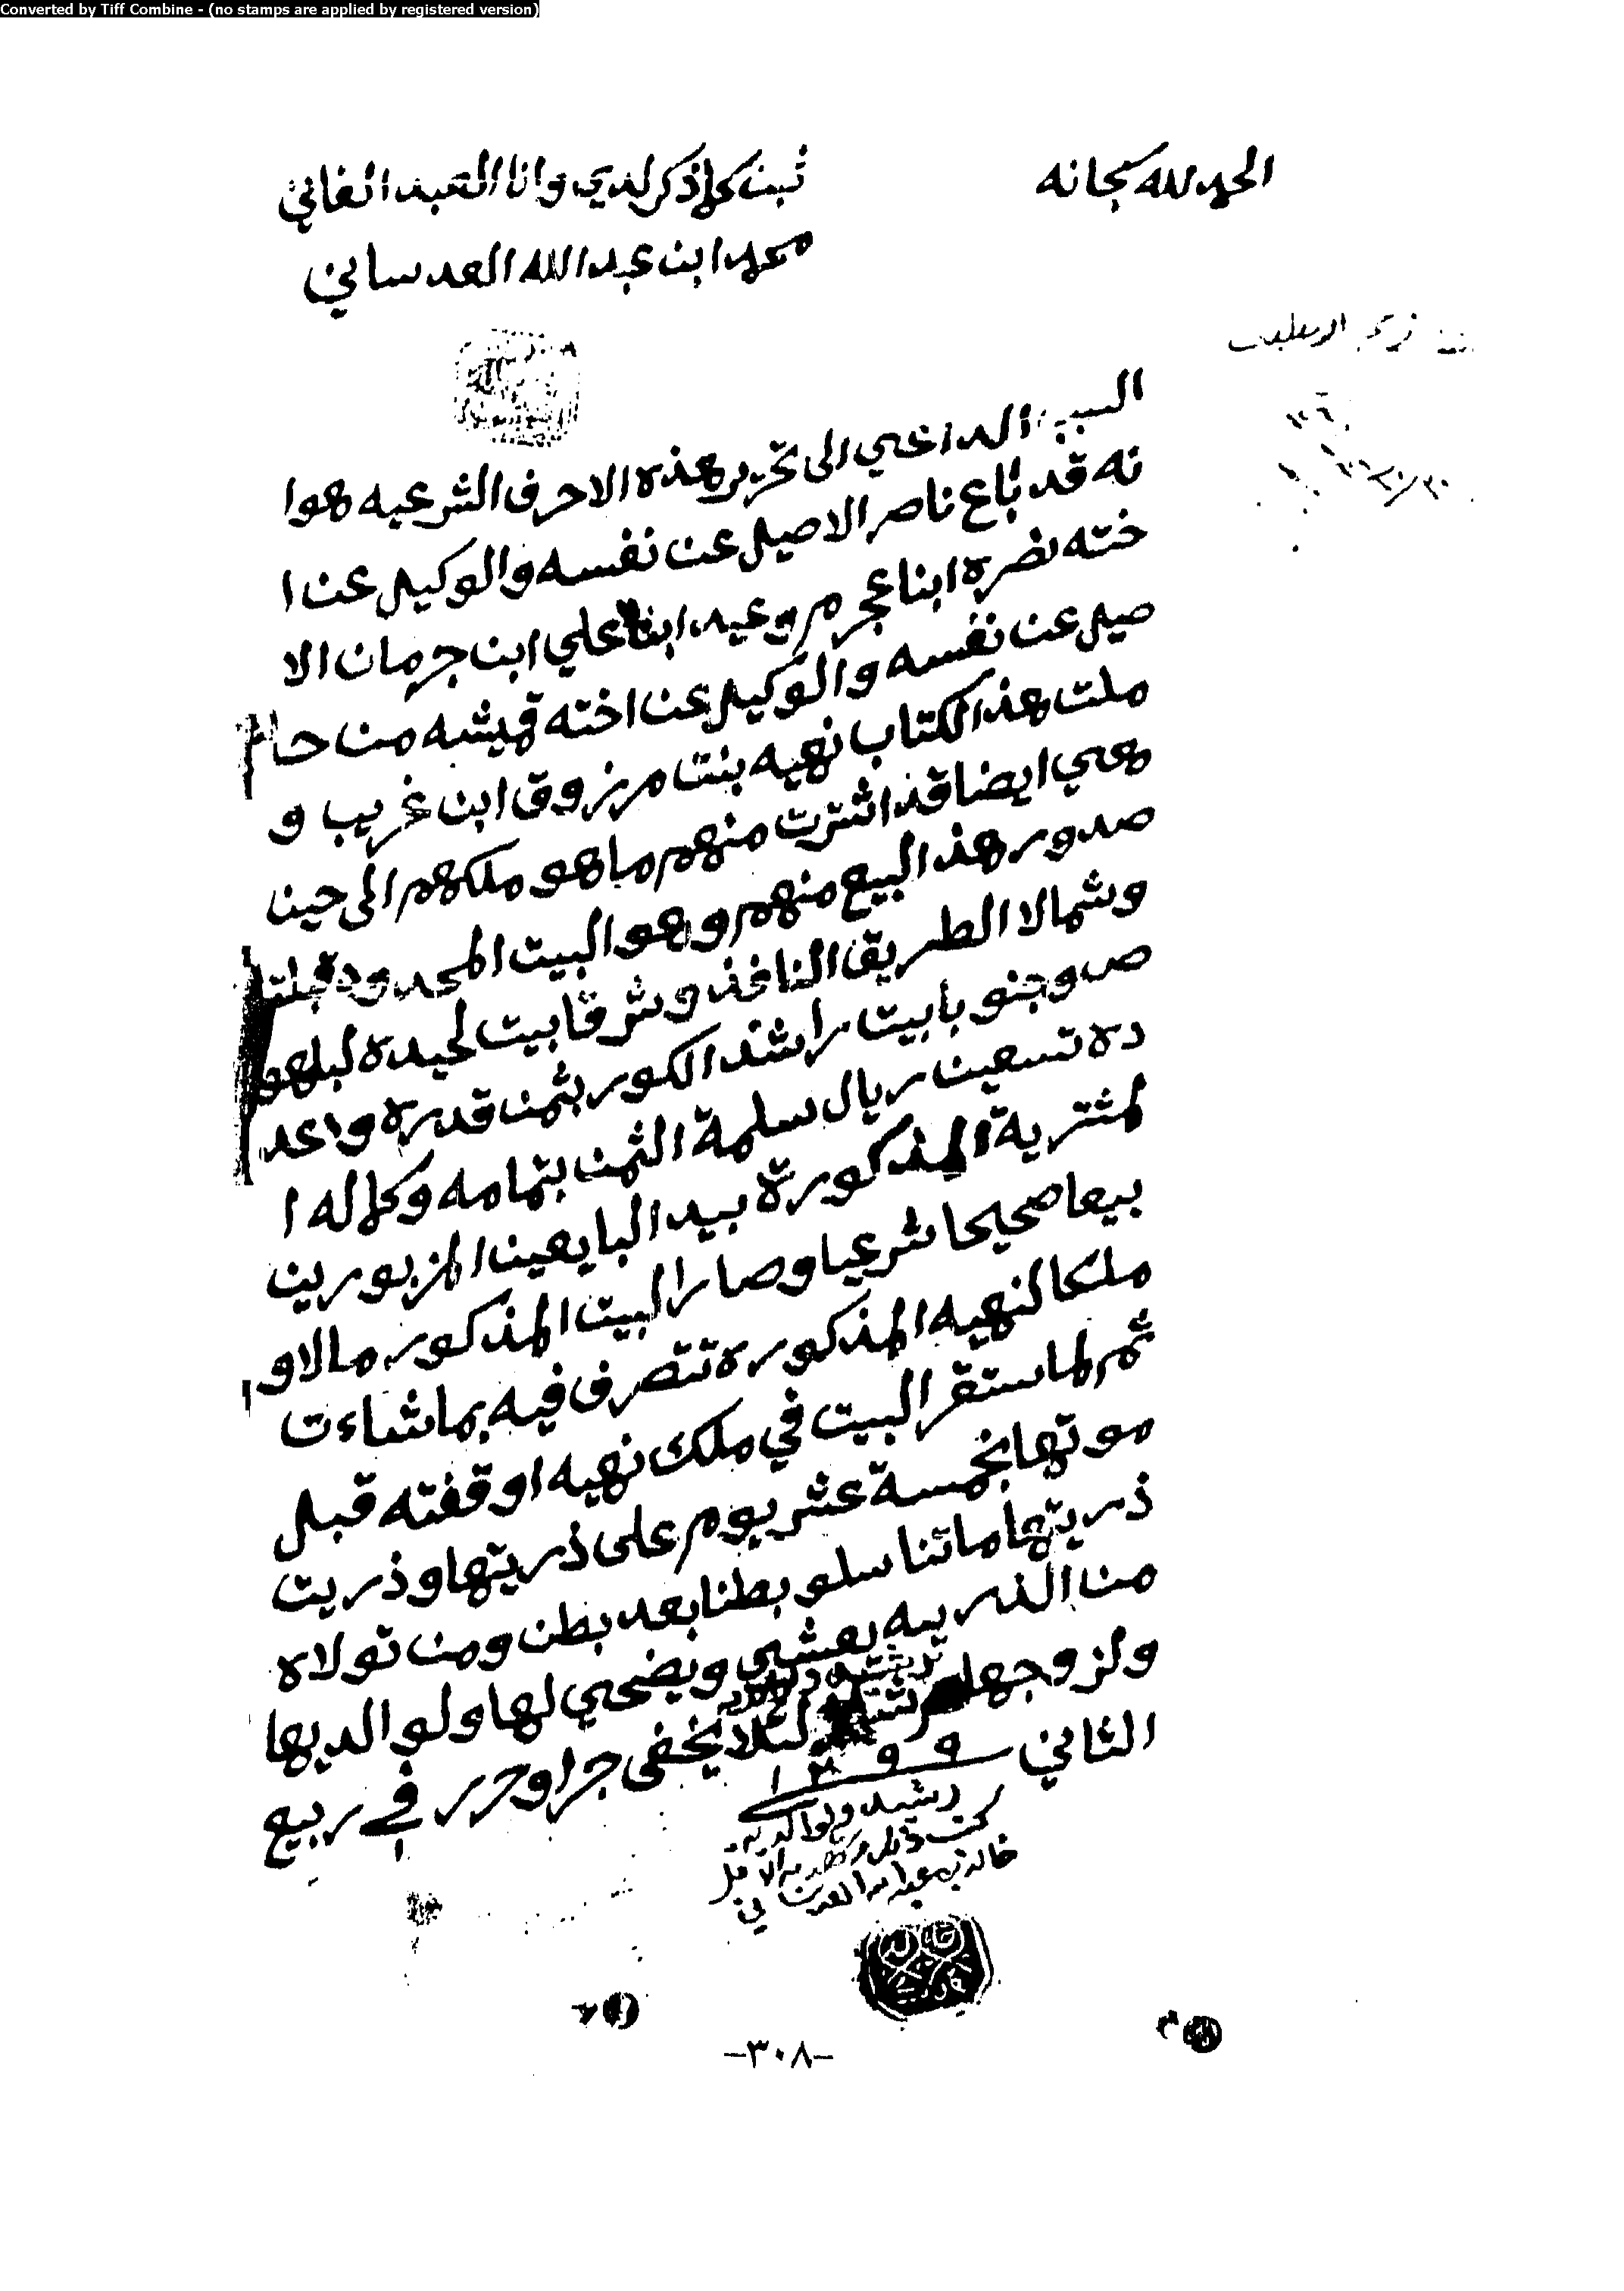 Converted by Tiff Combine - (no stamps are applied by registered version)
الحمد لله سبحانه
ثبت كلما ذكر لدي وانا العبد الفاني
محمد ابن عبد الله العدساني
السبب الداعي الى تحرير هذه الاحرف الشرعيه هوا
نه قد باع ناصر الاصيل عن نفسه والوكيل عن ا
خته نضره ابنا عجرم وعيد ابنا علي ابن جرمان الا
صيل عن نفسه والوكيل عن اخته قميشه من حا
ملت هذ الكتاب نهيه بنت مرزوق ابن غريب و
هعي ايضا قد اشترت منهم ما هو ملكهم الى حين
صدور هذ البيع منهم وهو البيت المحدود قبلتا
وشمالا الطريق النافذ وشرقا بيت لحيده لبلهو
ص وجنوبا بيت راشد الكور بثمن قدره واعد
ده تسعين ريال سلمة الثمن بتمامه وكماله ا
لمشترية المذكورة بيد البايعين المزبورين
بيعا صحيحا شرعيا وصار البيت المذكور مالا و
ملكا لنهيه المذكوره تتصرف فيه بما شاءت
ثم لما ستقر البيت في ملك نهيه اوقفته قبل
موتها بخمسة عشر يوم على ذريتها وذريت
ذريتها ما تناسلو بطنا بعد بطن ومن تولاه
من الذرييه يعشي ويضحي لها ولو الديها
ولزوجها لئلا يخفى جرا وحرر في ربيع
الثاني ١٢٩٩
رشيد ولوالديه
خالد بن عبد الله العدساني
-٣٠٨-